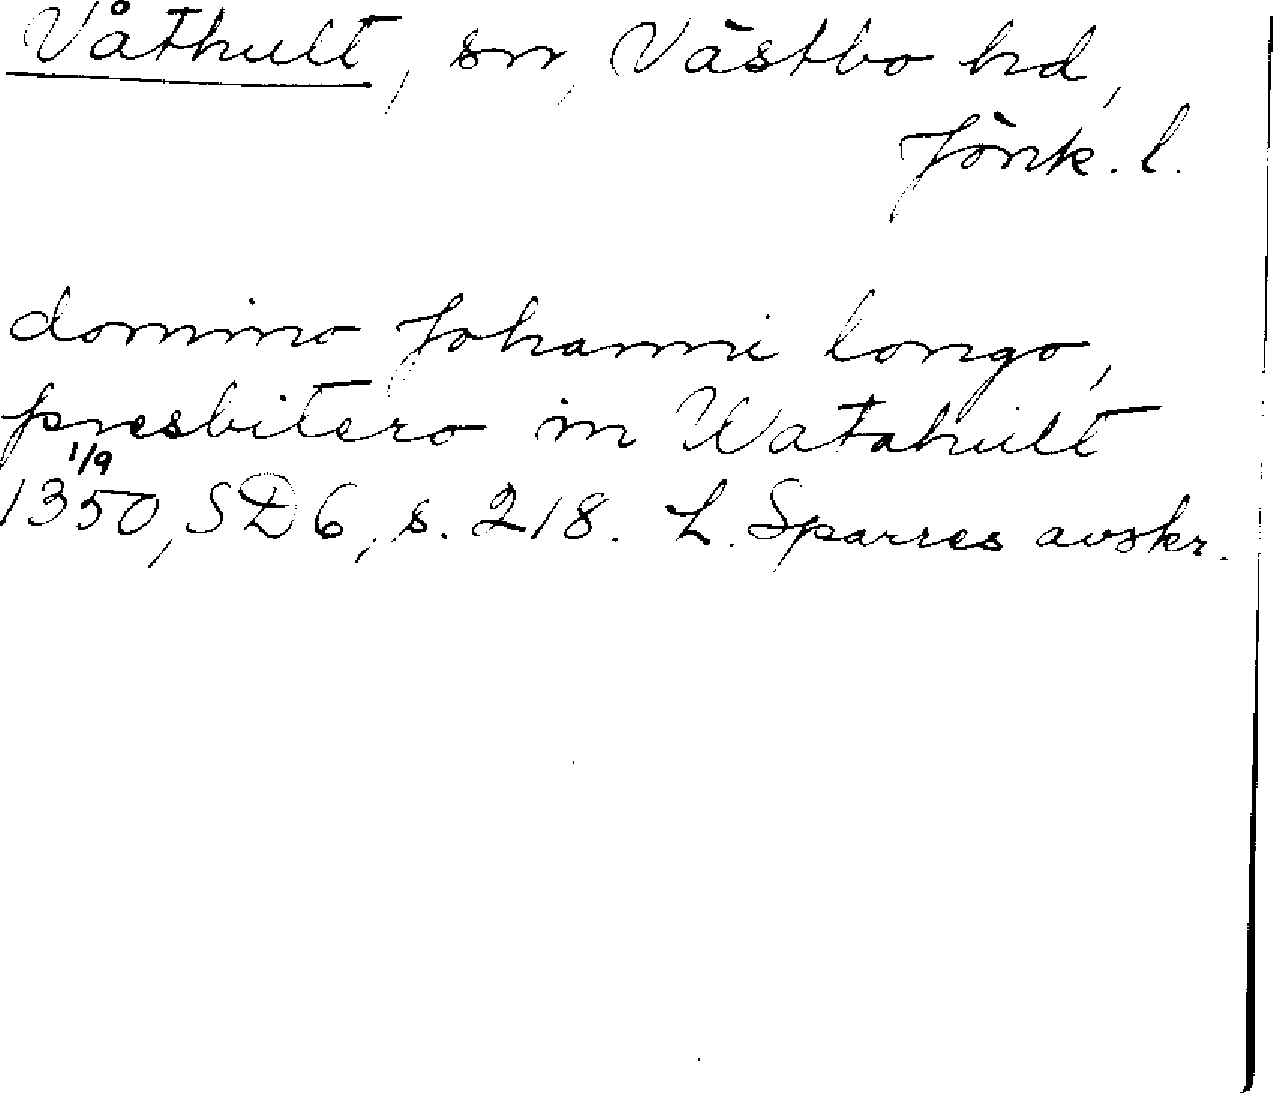 Våthult, sn, Västbo hd,
Jönk. l.
domino Johanni longo,
presbitero in Watahult
1/9
1350, SD 6, s. 218. L. Sparres avskr.